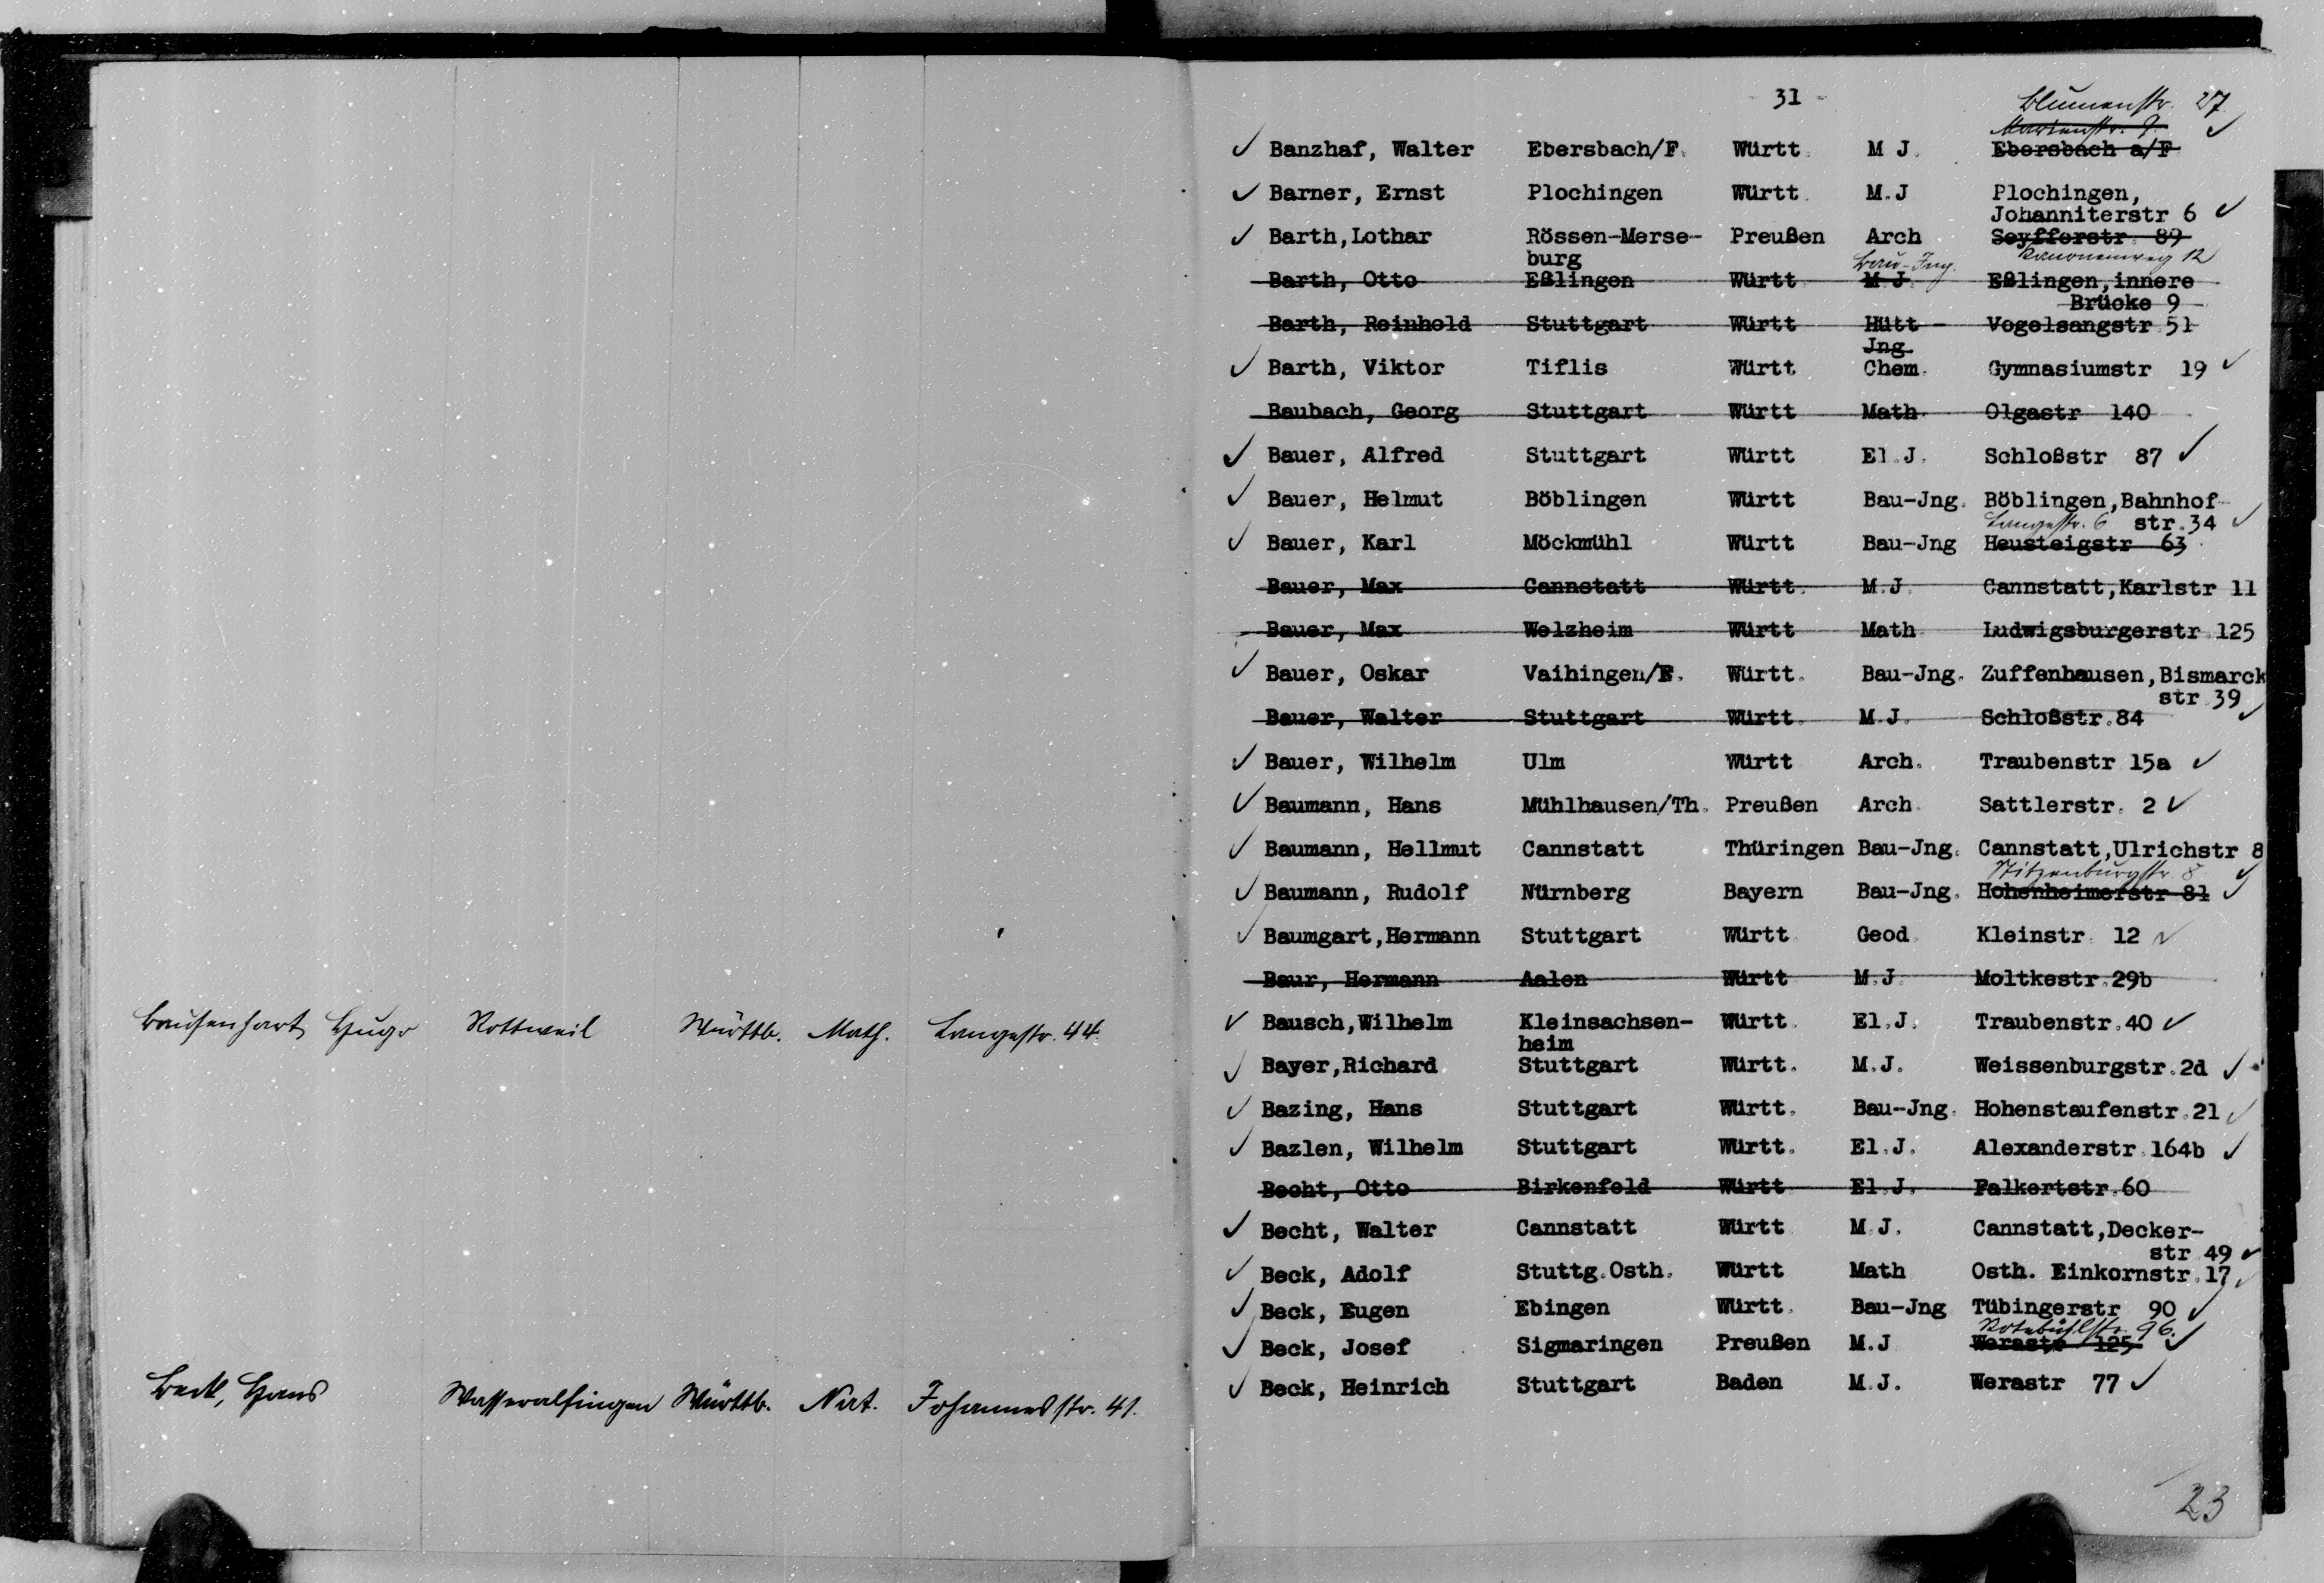 Bausenhart Hugo Rottweil Württb. Math. Langestr. 44.
Beck, Hans Wasseralfingen Württb. Nat. Johannesstr. 41.
31
Blumenstr. 27
Marienstr. 9
Banzhaf, Walter Ebersbach/F. Württ. M J. Ebersbach a/F
Barner, Ernst Plochingen Württ. M.J Plochingen,
Johanniterstr 6
Barth,Lothar Rössen-Merse- Preußen Arch Seyfferstr. 89
burg Bau-Ing. Kanonenweg 12
Barth, Otto Eßlingen Württ M J. Eßlingen,innere
Brücke 9
Barth, Reinhold Stuttgart Württ Hütt - Vogelsangstr.51
Jng.
Barth, Viktor Tiflis Württ. Chem. Gymnasiumstr 19
Baubach, Georg Stuttgart Württ Math Olgastr 140
Bauer, Alfred Stuttgart Württ El.J. Schloßstr 87
Bauer, Helmut Böblingen Württ Bau-Jng. Böblingen,Bahnhof-
Langestr. 6 str.34
Bauer, Karl Möckmühl Württ Bau-Jng Heusteigstr 63
Bauer, Max Cannstatt Württ. M.J. Cannstatt,Karlstr 11
Bauer, Max Welzheim Württ Math Ludwigsburgerstr.125
Bauer, Oskar Vaihingen/F. Württ. Bau-Jng. Zuffenhausen,Bismarck
str.39
Bauer, Walter Stuttgart Württ. M.J. Schloßstr.84
Bauer, Wilhelm Ulm Württ Arch. Traubenstr 15a
Baumann, Hans Mühlhausen/Th. Preußen Arch. Sattlerstr. 2
Baumann, Hellmut Cannstatt Thüringen Bau-Jng. Cannstatt,Ulrichstr 8
Stitzenburgstr. 8
Baumann, Rudolf Nürnberg Bayern Bau-Jng. Hohenheimerstr 81
Baumgart,Hermann Stuttgart Württ. Geod. Kleinstr. 12
Baur, Hermann Aalen Württ M.J. Moltkestr.29b
Bausch,Wilhelm Kleinsachsen- Württ. El.J. Traubenstr.40
heim
Bayer,Richard Stuttgart Württ. M.J. Weissenburgstr.2d
Bazing, Hans Stuttgart Württ. Bau-Jng. Hohenstaufenstr.21
Bazlen, Wilhelm Stuttgart Württ. El.J. Alexanderstr.164b
Becht, Otto Birkenfeld Württ El.J. Falkertstr.60
Becht, Walter Cannstatt Württ M.J. Cannstatt,Decker-
str.49
Beck, Adolf Stuttg.Osth. Württ Math Osth. Einkornstr.17
Beck, Eugen Ebingen Württ. Bau-Jng Tübingerstr 90
Rotebühlstr. 96.
Beck, Josef Sigmaringen Preußen M.J Werastr 125
Beck, Heinrich Stuttgart Baden M.J. Werastr 77
23